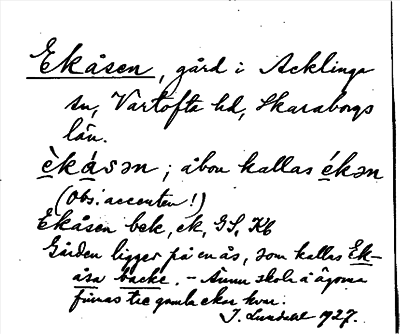 Ekåsen, gård i Acklinga
sn, Vartofta hd, Skaraborgs
län.
èkásən; åbon kallas ékən
(Obs. accenten!)
Ekåsen bek, ek, GS, Kb
Gården ligger på en ås, som kallas Ek-
åsa backe. – Ännu skola å ägorna
finnas tre gamla ekar kvar.
J. Lundahl 1927.